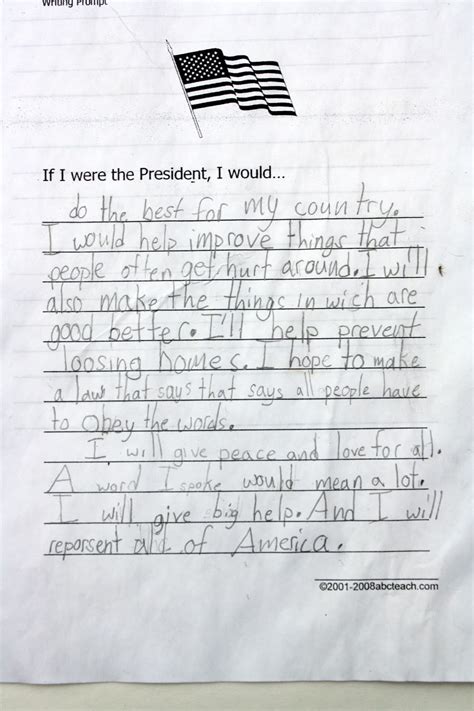 Writing Prompt
If I were the President, I would...
do the best for my country.
I would help improve things that
people often get hurt around. I will
also make the things in wich are
good better. I'll help prevent
loosing homes. I hope to make
a law that says that says all people have
to obey the words.
I will give peace and love for all.
A word I spoke would mean a lot.
I will give big help. And I will
reporsent of America.
©2001-2008abcteach.com